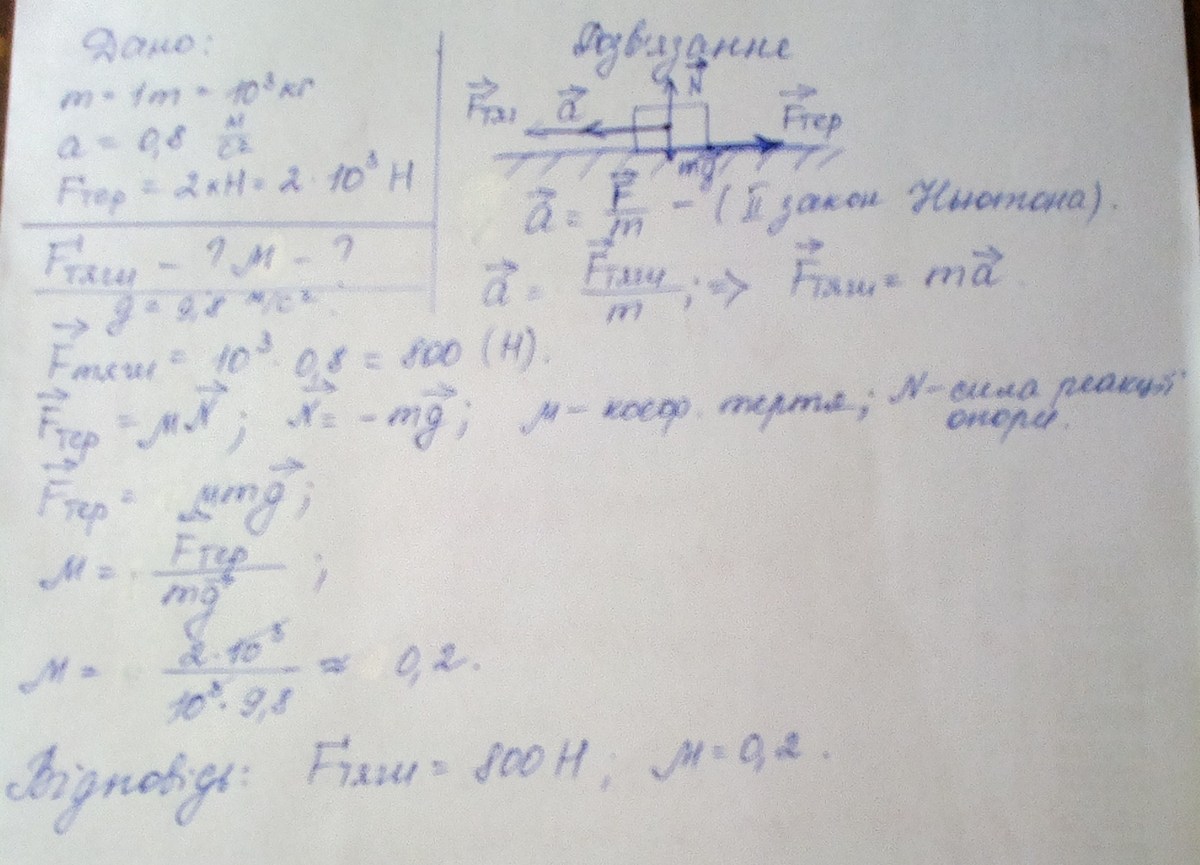 Дано:
m = 1т = 10³ кг
a = 0,8 м/с²
Fтер = 2кН = 2·10³ Н
F⃗тяги - ? μ - ?
g = 9,8 м/с²
Розв'язання
F⃗тяг a⃗ N⃗ F⃗тер
mg⃗
a⃗ = F⃗/m - (II закон Ньютона).
a⃗ = F⃗тяги/m ; => F⃗тяги = ma⃗
F⃗тяги = 10³ · 0,8 = 800 (Н).
F⃗тер = μN⃗; N⃗ = -mg⃗; μ - коеф. тертя; N - сила реакції
опори.
F⃗тер = μmg⃗;
μ = F⃗тер/mg⃗ ;
μ = 2·10³/10³·9,8 ≈ 0,2.
Відповідь: F⃗тяги = 800 Н; μ = 0,2.